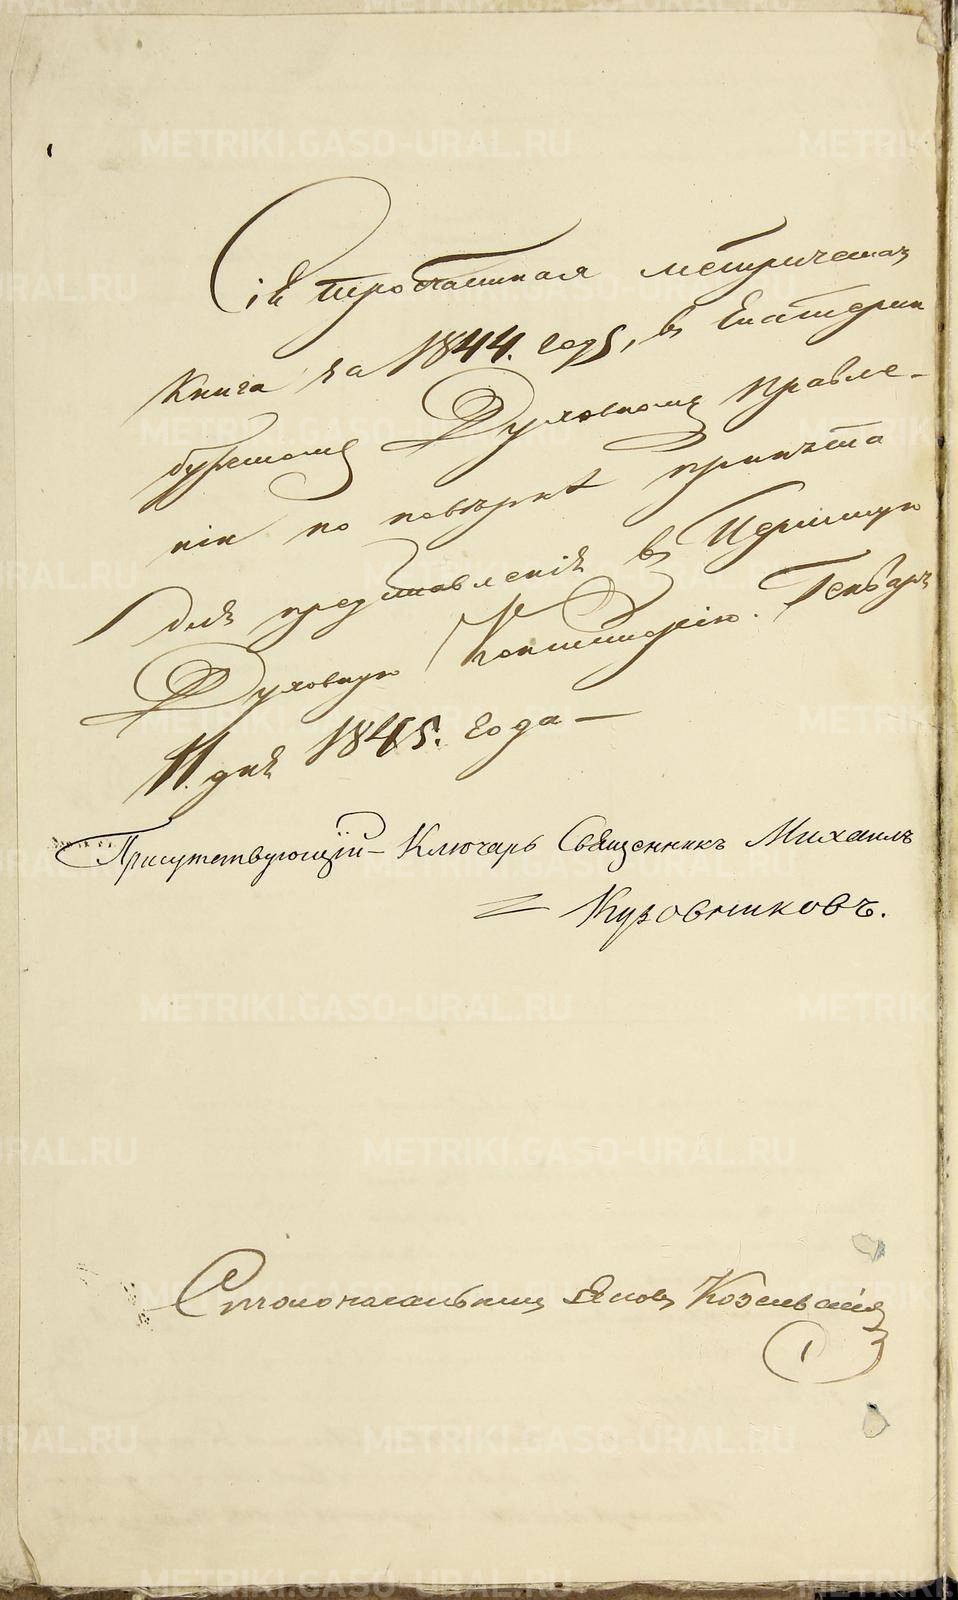 Сія трочастная метрическая
книга за 1844. годъ, въ Екатерин
бургскомъ Духовномъ Правле-
ніи по повѣркѣ принята
для представленія въ Пермскую
Духовную Консисторію. Генваря
11. дня 1845. года —
Присутствующій – Ключарь Священникъ Михаилъ
Кузовниковъ.
Столоначальникъ Яковъ
1